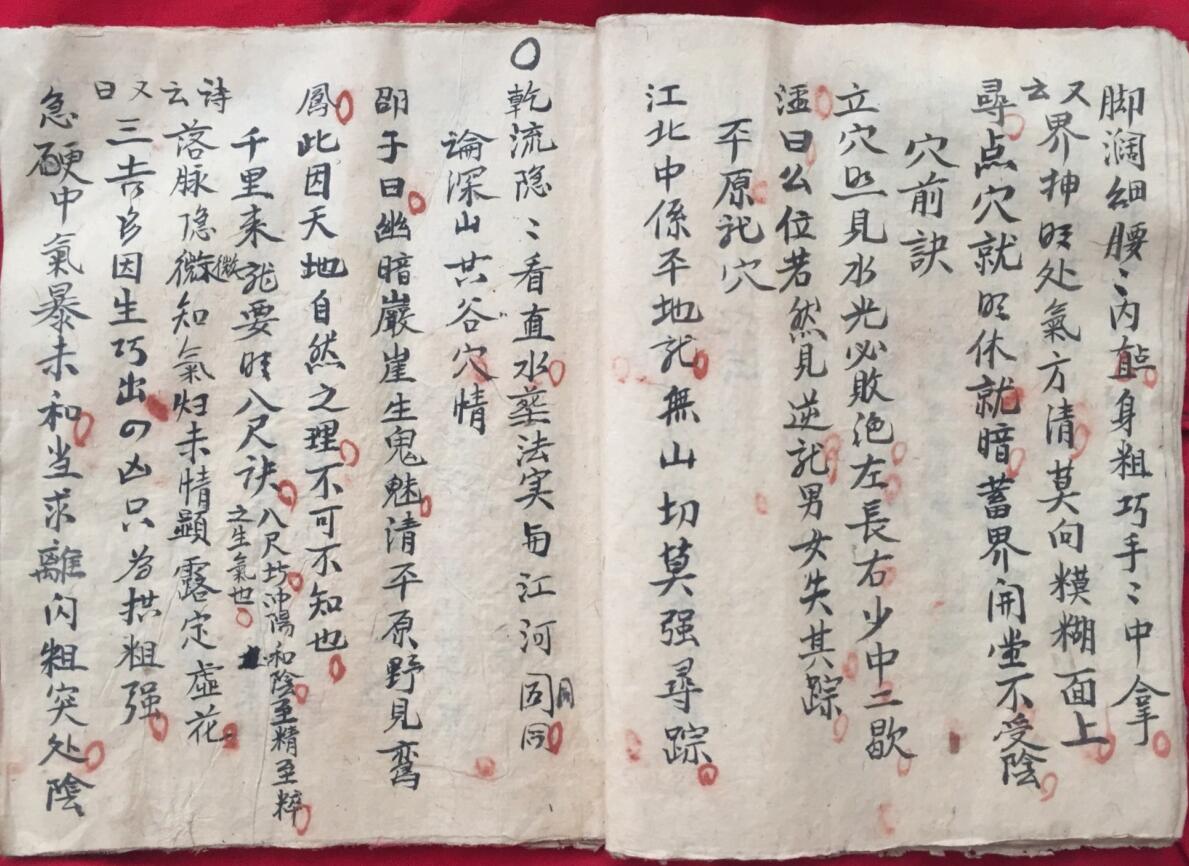 脚濶细腰〻内直身粗巧手〻中拿
又云界抻旺处氣方清莫向糢糊面上
尋点穴就旺休就暗蓄界开堂不受陰
穴前訣
立穴思見水光必敗绝左長右少中二歇
曰公位若然見逆就男女失其踪
平原龙穴
江北中係平地龙無山切莫强尋踪
乾流隐〻看直水葬法实与江河同
論深山共谷穴情
邵子曰幽暗巖崖生鬼魅清平原野見鸾
鳳此因天地自然之理不可不知也
千里来龙要旺八尺诀八尺坊冲陽和陰至精至粹之生氣也
诗云落脉隐微知氣归未情顯露定虚花
又曰三吉皆因生巧出四凶只为拱粗强
急硬中氣暴未和当求離闪粗突处陰